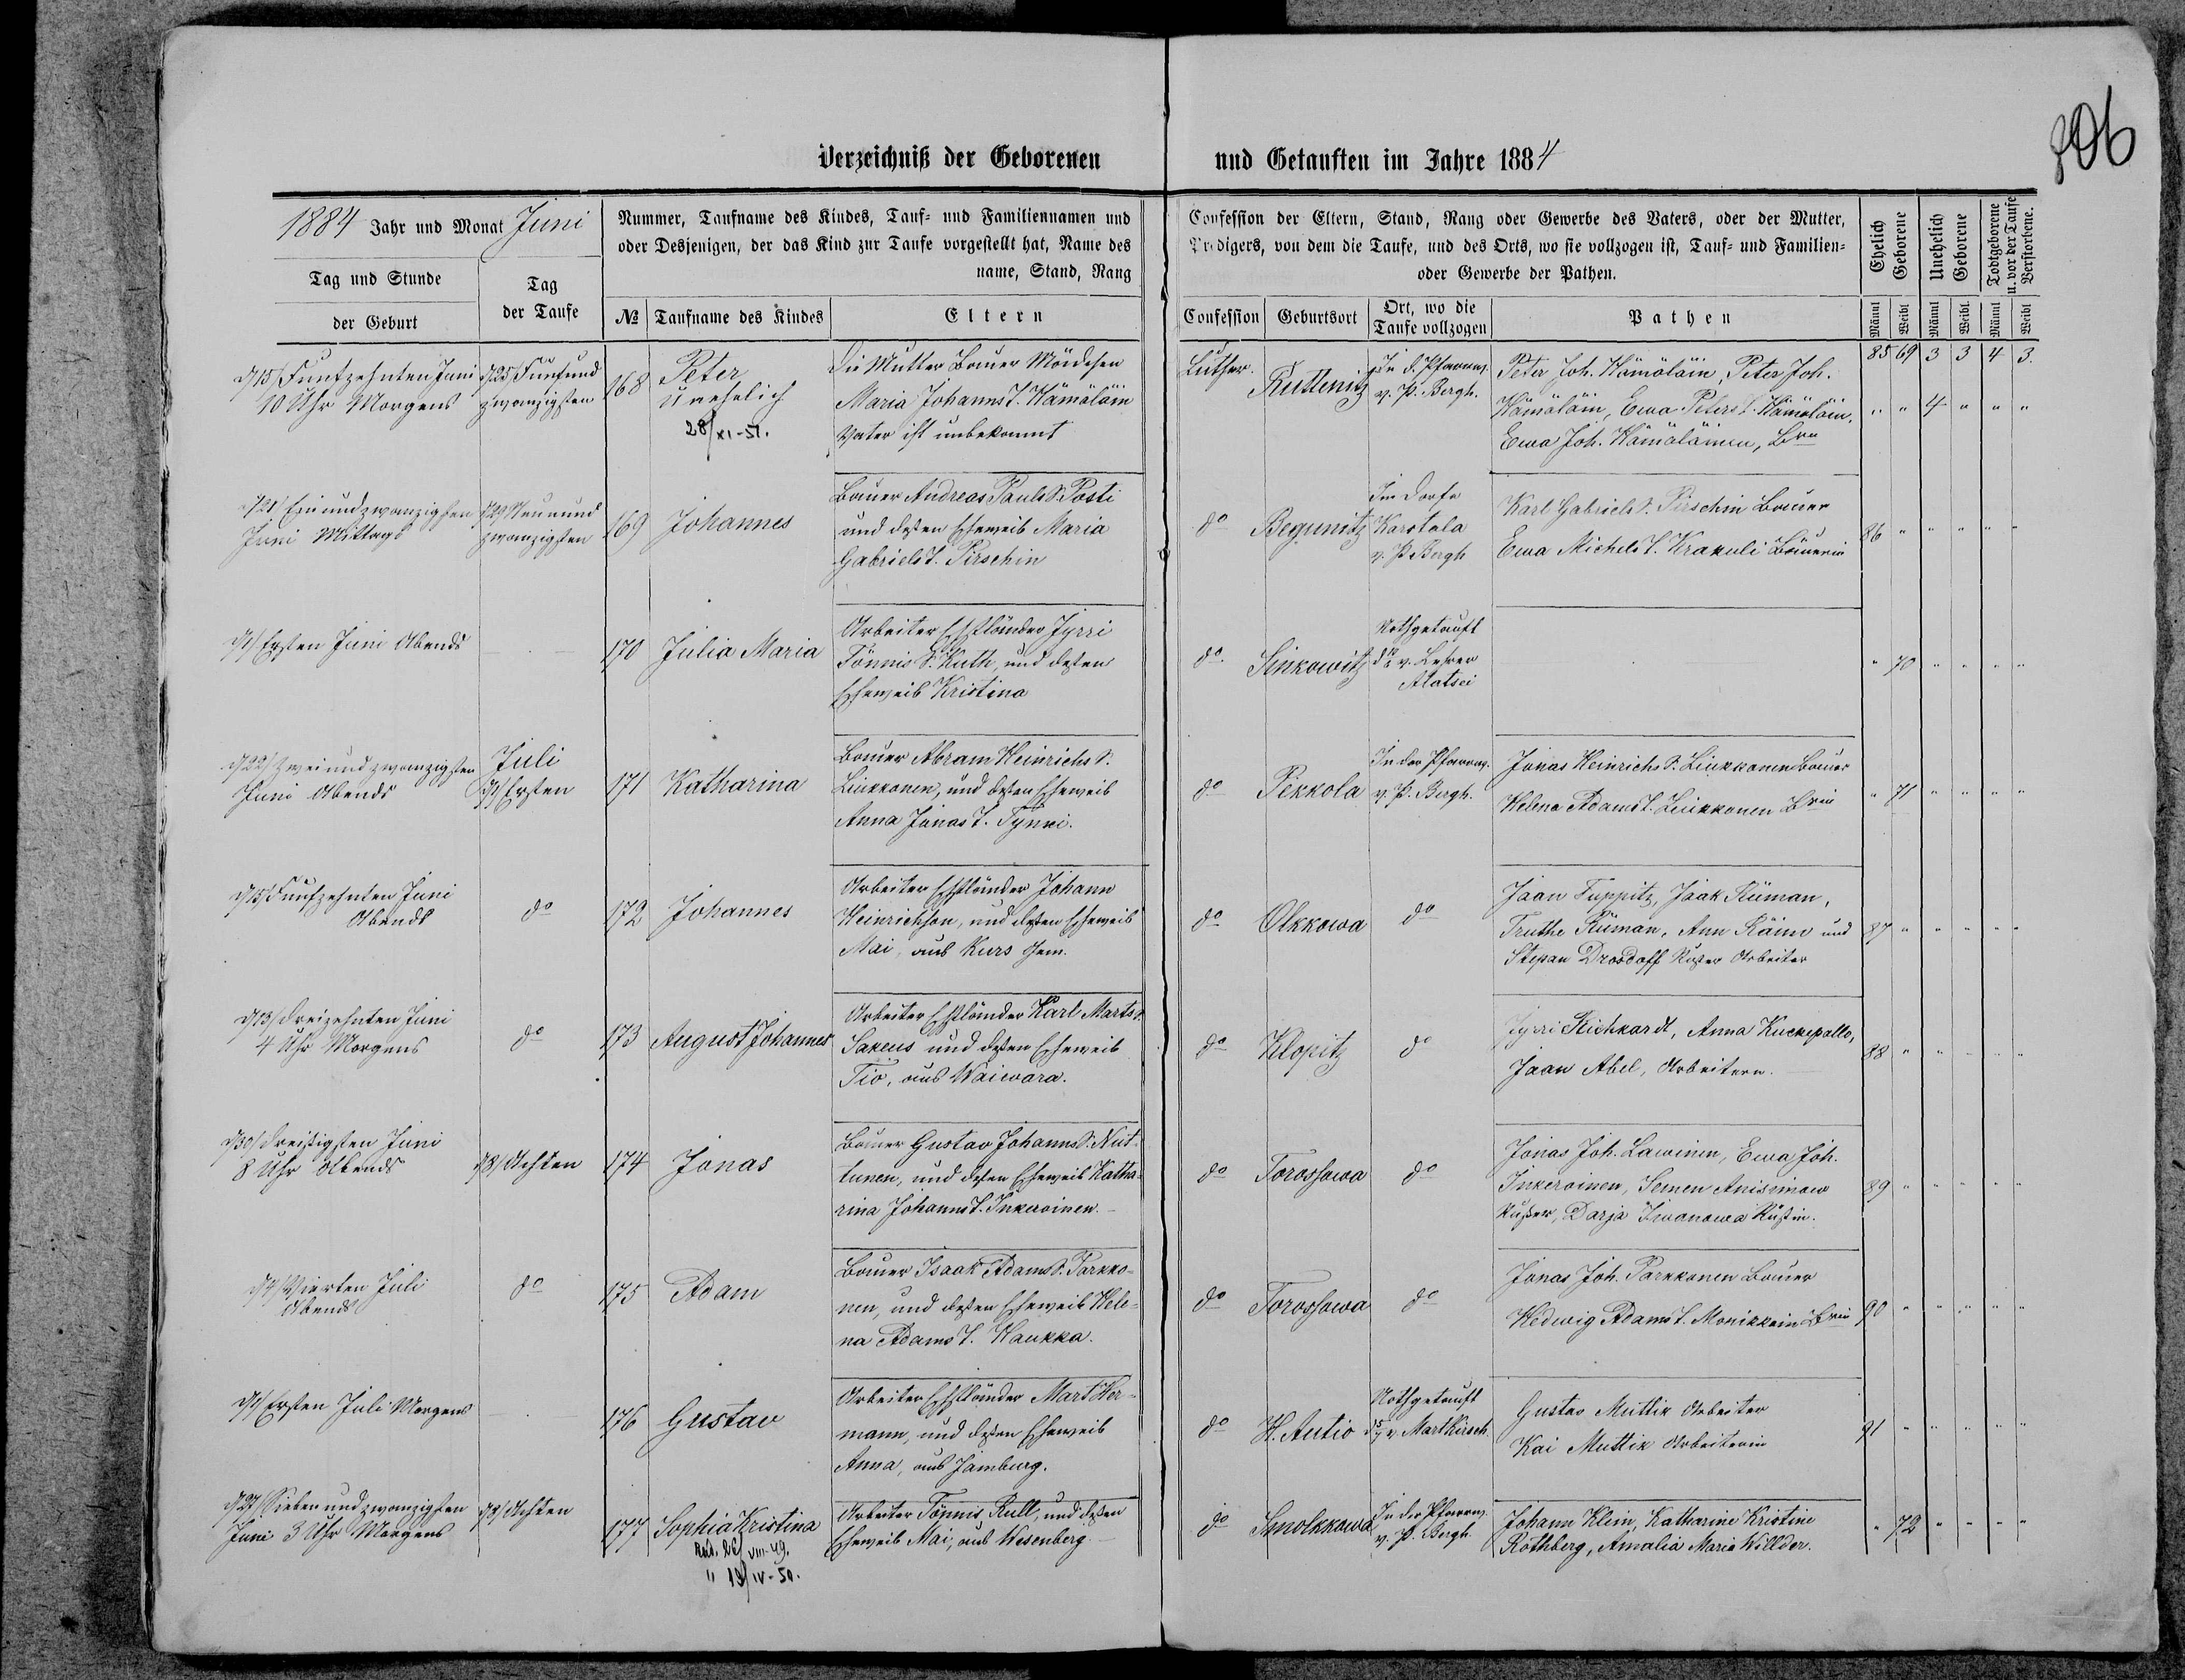 806
Verzeichniß der Geborenen und Getauften im Jahre 1884
1884 Jahr und Monat Juni
Tag und Stunde
der Geburt
Tag
der Taufe
Nummer, Taufname des Kindes, Tauf- und Familiennamen und
oder Desjenigen, der das Kind zur Taufe vorgestellt hat, Name des
name, Stand, Rang
№ Taufname des Kindes
Eltern
Confession der Eltern, Stand, Rang oder Gewerbe des Vaters, oder der Mutter,
Predigers, von dem die Taufe, und des Orts, wo sie vollzogen ist, Tauf- und Familien-
oder Gewerbe der Pathen.
Confession Geburtsort
Ort, wo die
Taufe vollzogen
Pathen
Ehelich
Geborene
Unehelich
Geborene
Todtgeborene
u. vor der Taufe
Verstorbene.
Männl Weibl Männl Weibl. Männl Weibl
85 69 3 3 4 3.
d 15/ Funfzehnten Juni
10 Uhr Morgens
d 25/ Fünfund
zwanzigsten
168
Peter
Unehelich
28/XI-51.
Die Mutter Bauer Mädchen
Maria Johanns T. Hämäläin
Vater ist unbekannt
Luther.
Ruttenitz
In d. Pfarrw.
v. P. Bergh.
Peter Joh. Hämäläin, Peter Joh.
Hämäläin, Ewa Peters T. Hämäläin,
Ewa Joh. Hämäläinen, Brn
" " 4 " " "
d 21/ Einundzwanzigsten
Juni Mittags
d 29/ Neunund
zwanzigsten
169 Johannes
Bauer Andreas Pauls S. Posti
und dessen Eheweib Maria
Gabriels T. Pirschin
do Begunitz
Im Dorfe
Karstala
v. P. Bergh
Karl Gabriels S. Pirschin Bauer
Ewa Michels T. Krakuli Bäuerin
86 " " " " "
d 1/ Ersten Juni Abends
170 Julia Maria
Arbeiter Ehstländer Jyrri
Tönnis S. Kuth, und dessen
Eheweib Kristina
do. Sinkowitz
Nothgetauft
v. Lehrer
Alatsei
" 70 " " " "
d 22/ Zweiundzwanzigsten
Juni Abends
Juli
d 1/ Ersten
171 Katharina
Bauer Abram Heinrichs S.
Liukkonen, und dessen Eheweib
Anna Jonas T. Tynni.
do Pekkola
In der Pfarrw.
v. P. Bergh.
Jonas Heinrichs S. Liukkonen Bauer
Helena Adams T. Liukkonen Brin
" 71 " " " "
d 15/ Funfzehnten Juni
Abends
do
172 Johannes
Arbeiter Ehstländer Johann
Heinrichson, und dessen Eheweib
Mai, aus Kurs Gem.
do Olkkowa do
Jaan Tuppitz, Jaak Rüman,
Truthe Rüman, Ann Räim und
Stepan Drosdoff Russer Arbeiter
87 " " " " "
d 13/ Dreizehnten Juni
4 Uhr Morgens
do
173 August Johannes
Arbeiter Ehstländer Karl Marts S.
Sakeus und dessen Eheweib
Tio, aus Waiwara.
do Klopitz do
Jyrri Richkardt, Anna Kuckepallo,
Jaan Abel, Arbeitern.
88 " " " " "
d 30/ Dreißigsten Juni
8 Uhr Abends
d 8/ Achten
174 Jonas
Bauer Gustav Johanns S. Nut-
tunen, und dessen Eheweib Katha-
rina Johanns T. Inkeroinen.
do Torossowa do
Jonas Joh. Lawinen, Ewa Joh.
Inkeroinen, Semen Anisimow
Russer, Darja Iwanowa Russin.
89 " " " " "
d 4/ Vierten Juli
Abends
do
175 Adam
Bauer Isaak Adams S. Parkko-
nen, und dessen Eheweib Hele-
na Adams T. Kaukka.
do Torossowa do
Jonas Joh. Parkkonen Bauer
Hedwig Adams T. Monikkain Brin
90 " " " " "
d 1/ Ersten Juli Morgens
176 Gustav
Arbeiter Ehstländer Mart Her-
mann, und dessen Eheweib
Anna, aus Jamburg.
do H. Autio
Nothgetauft
v. Mart Kirsch.
Gustav Muttik Arbeiter
Kai Muttik Arbeiterin
91 " " " " "
d 27/ Siebenundzwanzigsten
Juni 3 Uhr Morgens
d 8/ Achten
177 Sophia Kristina
26/VIII-49.
" 19/IV-50.
Arbeiter Tönnis Rull, und dessen
Eheweib Mai, aus Wesenberg
do Smolkkowa
In der Pfarrw.
v. P. Bergh.
Johann Klein, Katharine Kristine
Rothberg, Amalia Maria Willder.
" 72 " " " "